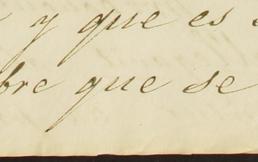 y que es
bre que se